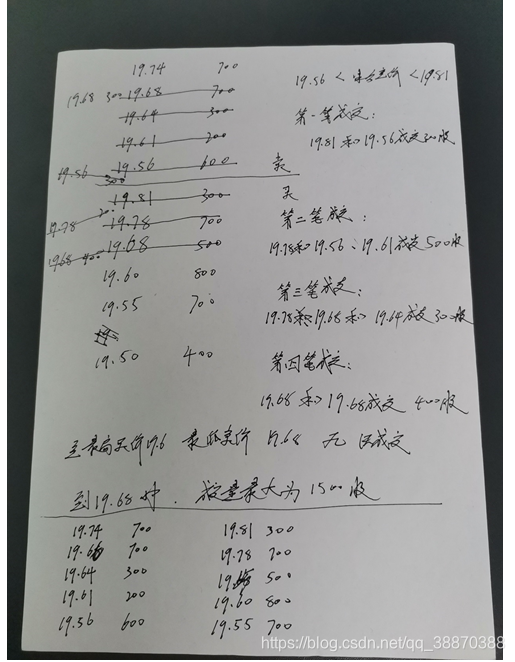 19.74 700
19.68 300 19.68 700
19.64 300
19.61 200
19.56 19.56 600 卖
300
19.81 300 买
19.78 19.78 700
19.68 400 19.68 500
19.60 800
19.55 700
19.50 400
19.56 < 集合竞价 < 19.81
第一笔成交:
19.81 和 19.56成交300股
第二笔成交:
19.78和19.56、19.61成交500股
第三笔成交:
19.78 19.68 和 19.64成交300股
第四笔成交:
19.68 和 19.68成交 400股
至最高买价19.6 最低卖价 19.68 无 成交
到19.68时. 成交量最大为1500股
19.74 700 19.81 300
19.68 700 19.78 700
19.64 300 19.68 500
19.61 200 19.60 800
19.56 600 19.55 700
https://blog.csdn.net/qq_38870388